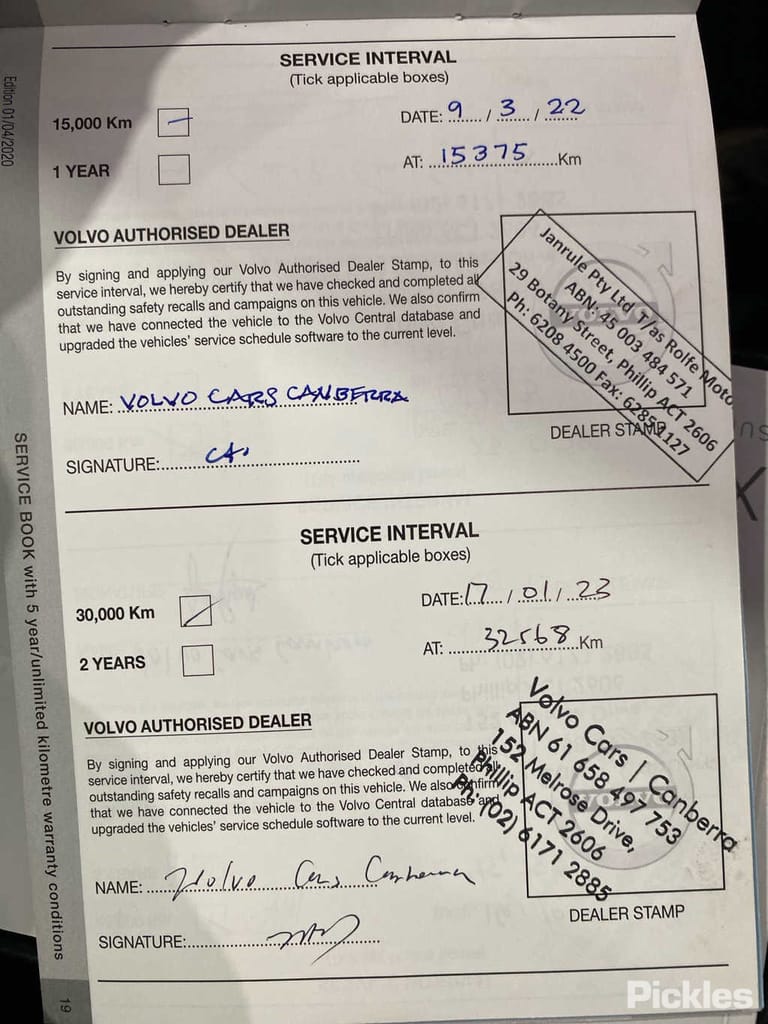 SERVICE INTERVAL
(Tick applicable boxes)
15,000 Km
DATE: 9 / 3 / 22
1 YEAR
AT: 15375 Km
VOLVO AUTHORISED DEALER
By signing and applying our Volvo Authorised Dealer Stamp, to this
service interval, we hereby certify that we have checked and completed all
outstanding safety recalls and campaigns on this vehicle. We also confirm
that we have connected the vehicle to the Volvo Central database and
upgraded the vehicles' service schedule software to the current level.
NAME: VOLVO CARS CANBERRA
SIGNATURE:
Janrule Pty Ltd T/as Rolfe Moto
ABN: 45 003 484 571
29 Botany Street, Phillip ACT 2606
Ph: 6208 4500 Fax: 6285 1127
DEALER STAMP
SERVICE INTERVAL
(Tick applicable boxes)
30,000 Km
DATE: 17 / 01 / 23
2 YEARS
AT: 32568 Km
VOLVO AUTHORISED DEALER
By signing and applying our Volvo Authorised Dealer Stamp, to this
service interval, we hereby certify that we have checked and completed all
outstanding safety recalls and campaigns on this vehicle. We also confirm
that we have connected the vehicle to the Volvo Central database and
upgraded the vehicles' service schedule software to the current level.
NAME: Volvo Cars Canberra
SIGNATURE:
Volvo Cars | Canberra
ABN 61 658 497 753
152 Melrose Drive,
Phillip ACT 2606
Ph: (02) 6171 2885
VOLVO
DEALER STAMP
Edition 01/04/2020
SERVICE BOOK with 5 year/unlimited kilometre warranty conditions
19
Pickles